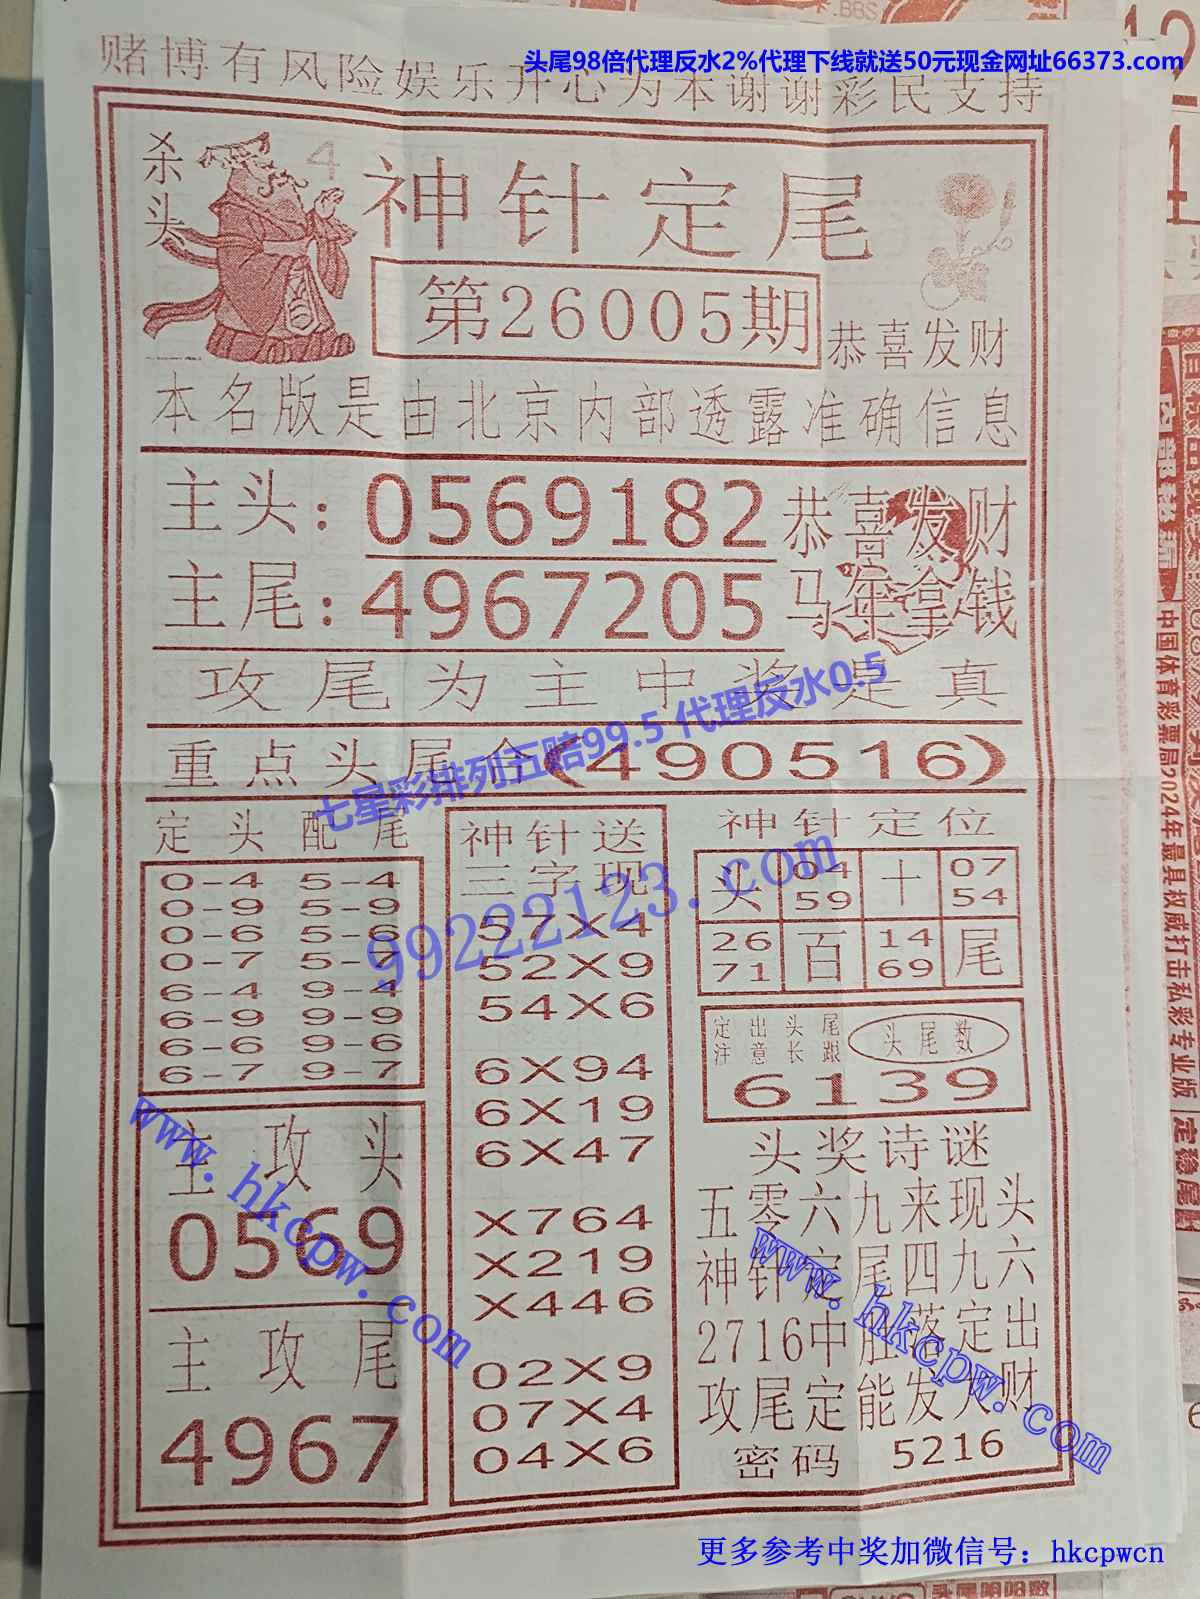 头尾98倍代理反水2%代理下线就送50元现金网址66373.com
赌博有风险娱乐开心为本谢谢彩民支持
杀头
4
神针定尾
第26005期
恭喜发财
本名版是由北京内部透露准确信息
主头：0569182
恭喜发财
主尾：4967205
马年拿钱
攻尾为主中奖是真
七星彩排列五赔99.5 代理反水0.5
重点头尾合(490516)
定头配尾
0-4 5-4
0-9 5-9
0-6 5-6
0-7 5-7
6-4 9-4
6-9 9-9
6-6 9-6
6-7 9-7
主攻头
0569
主攻尾
4967
神针送
三字现
57X4
52X9
54X6
6X94
6X19
6X47
X764
X219
X446
02X9
07X4
04X6
神针定位
头 04 59 十 07 54
26 71 百 14 69 尾
定出头尾
注意长跟
头尾数
6139
头奖诗谜
五零六九来现头
神针定尾四九六
2716中胜落定出
攻尾定能发大财
密码 5216
99222123.com
www.hkcpw.com
www.hkcpw.com
更多参考中奖加微信号：hkcpwcn
中国体育彩票局2024年最具权威打击私彩专业版
定稳尾